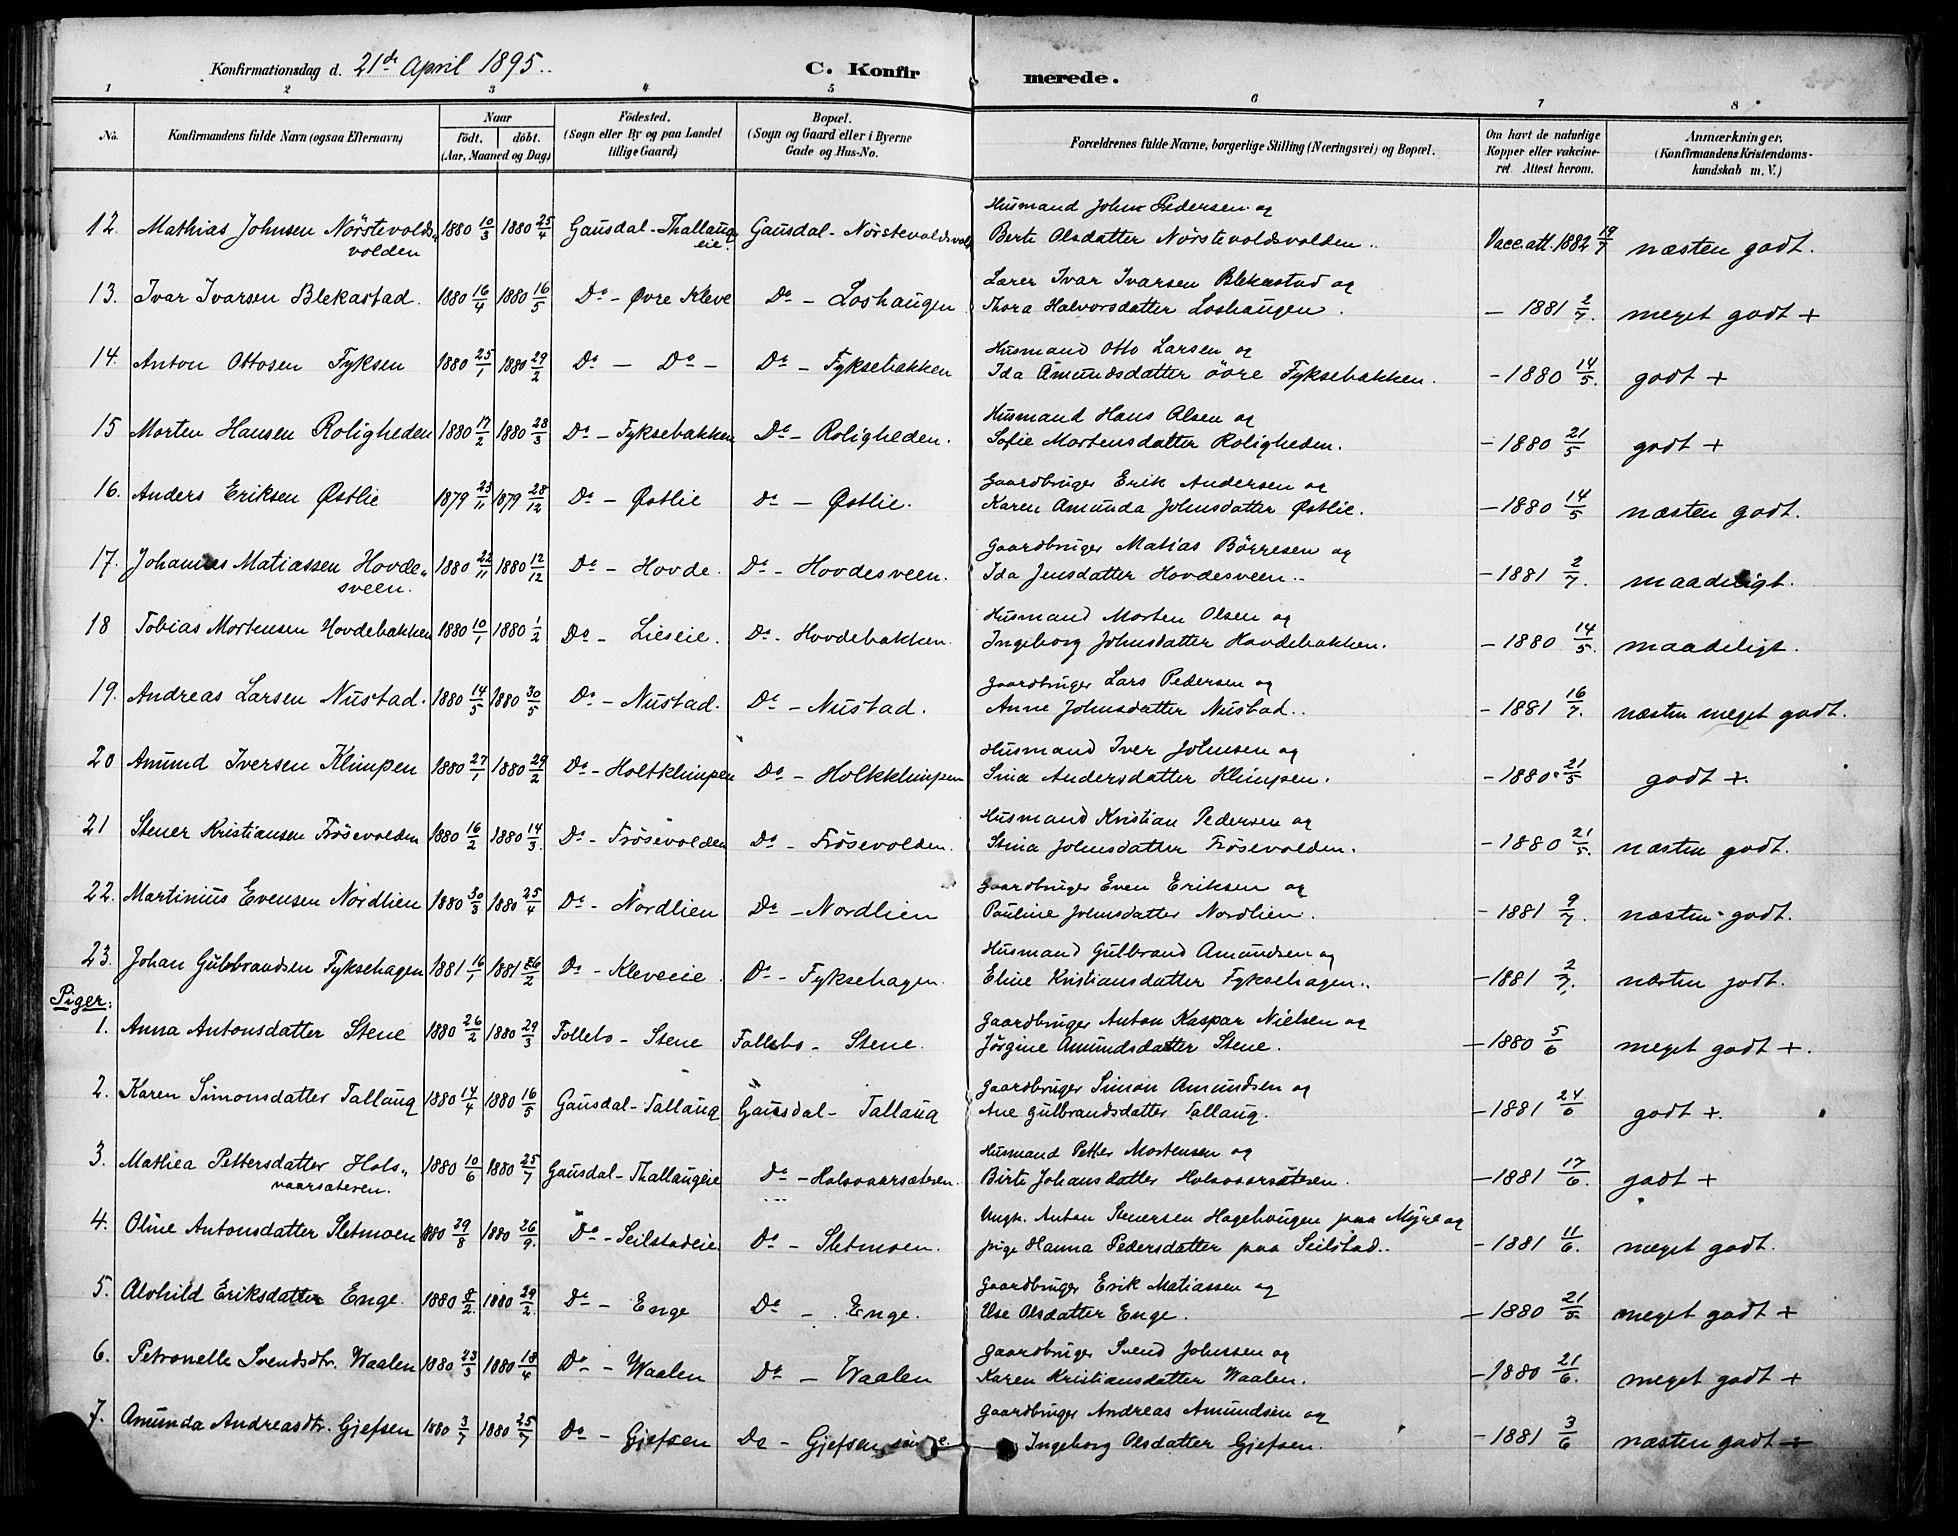 Konfirmationsdag d. 21de April 1895.. C. Konfirmerede.
1 2 3 4 5 6 7 8
No. Konfirmandens fulde Navn (ogsaa Efternavn) Naar födt. döbt. (Aar, Maaned og Dag) Födested. (Sogn eller By og paa Landet tillige Gaard) Bopæl. (Sogn og Gaard eller i Byerne Gade og Hus-No. Forældrenes fulde Navne, borgerlige Stilling (Næringsvei) og Bopæl. Om havt de naturlige Kopper eller vakcineret. Attest herom. Anmærkninger. (Konfirmandens Kristendomskundskab m. V.)
12. Mathias Johnsen Nörstevolds„ 1880 10/3 1880 25/4 Gausdal - Thallaug Gausdal - Nörstevoldsvold Husmand John Pedersen og
volden eie. Berte Olsdatter Nörstevoldsvolden .. Vacc.att. 1882 19/7 næsten godt.
13. Ivar Ivarsen Blekastad. 1880 16/4 1880 16/5 Do - Øvre Kleve Do - Loshaugen Lærer Ivar Ivarsen Blekastad og
Thora Halvorsdatter Loshaugen. - 1881 2/7. meget godt +
14. Anton Ottosen Fyksen 1880 25/1 1880 29/2 Do - Do - Do - Fyksebakken Husmand Otto Larsen og
Ida Amundsdatter övre Fyksebakken. - 1880 14/5. godt +
15 Morten Hansen Roligheden 1880 17/2 1880 28/3 Do - Fyksebakken Do - Roligheden. Husmand Hans Olsen og
Sofie Mortensdatter Roligheden. - 1880 21/5 godt +
16. Anders Eriksen Østlie 1879 23/11 1879 28/12 Do - Østlie Do - Østlie. Gaardbruger Erik Andersen og
Karen Amunda Johnsdatter Østlie. - 1880 14/5 næsten godt.
17. Johannes Matiassen Hovde„ 1880 22/11 1880 12/12 Do - Hovde. Do - Hovdesveen. Gaardbruger Matias Börresen og
sveen. Ida Jensdatter Hovdesveen.. - 1881 2/7. maadeligt.
18 Tobias Mortensen Hovdebakken 1880 10/1 1880 1/2 Do - Lieseie. Do - Hovdebakken. Husmand Morten Olsen og
Ingeborg Johnsdatter Hovdebakken. - 1880 14/5. maadeligt.
19. Andreas Larsen Nustad. 1880 14/5 1880 30/5 Do - Nustad. Do - Nustad. Gaardbruger Lars Pedersen og
Anne Johnsdatter Nustad.. - 1881 16/7. næsten meget godt.
20 Amund Iversen Klimpen 1880 27/1 1880 29/2 Do - Holtklimpen Do - Holkklimpen Husmand Iver Johnsen og
Sina Andersdatter Klimpen. - 1880 21/5 godt +.
21 Stener Kristiansen Frösevolden 1880 16/2 1880 14/3. Do - Frösevolden Do - Frösevolden. Husmand Kristian Pedersen og
Stina Johnsdatter Frösevolden. - 1880 21/5. næsten godt.
22. Martinius Evensen Nordlien 1880 30/3 1880 25/4 Do - Nordlien Do - Nordlien Gaardbruger Even Eriksen og
Pauline Johnsdatter Nordlien. - 1881 9/7. næsten godt.
23. Johan Gulbrandsen Fyksehagen 1881 16/1 1881 26/2 Do - Kleveeie. Do - Fyksehagen. Husmand Gulbrand Amundsen og
Eline Kristiansdatter Fyksehagen.. - 1881 2/7. næsten godt.
Piger:
1. Anna Antonsdatter Stene 1880 26/2 1880 29/3 Follebo - Stene Follebo - Stene. Gaardbruger Anton Kaspar Nielsen og
Jörgine Amundsdatter Stene. - 1880 5/6 meget godt +.
2. Karen Simonsdatter Tallaug 1880 14/4 1880 16/5 Gausdal - Tallaug Gausdal - Tallaug Gaardbruger Simon Amundsen og
Ane Gulbrandsdatter Tallaug. - 1881 24/6 godt +.
3. Mathea Pettersdatter Hols„ 1880 10/6 1880 25/7 Gausdal - Thallaugeie Do - Holsvaarsæteren. Husmand Petter Mortensen og
vaarsæteren. Birte Johansdatter Holsvaarsæteren. - 1881 17/6. godt +
4. Oline Antonsdatter Sletmoen 1880 29/8 1880 26/9. Do - Seilstadeie Do - Sletmoen. Ungk. Anton Stenersen Hagehaugen paa Myre og
pige Hanna Pedersdatter paa Seilstad.. - 1881 11/6. meget godt.
5. Alvhild Eriksdatter Enge. 1880 8/2. 1880 29/2. Do - Enge Do - Enge. Gaardbruger Erik Matiassen og
Ilse Olsdatter Enge. - 1880 21/5 meget godt +
6. Petronelle Svendsdtr. Waalen 1880 23/3 1880 18/4 Do - Waalen Do - Waalen Gaardbruger Svend Johnsen og
Karen Kristiansdatter Waalen. - 1880 21/6. meget godt +
7. Amunda Andreasdtr. Gjefsen 1880 3/7 1880 25/7 Do - Gjefsen Do - Gjefsen Gaardbruger Andreas Amundsen og
Ingeborg Olsdatter Gjefsen. - 1881 3/6 næsten godt +